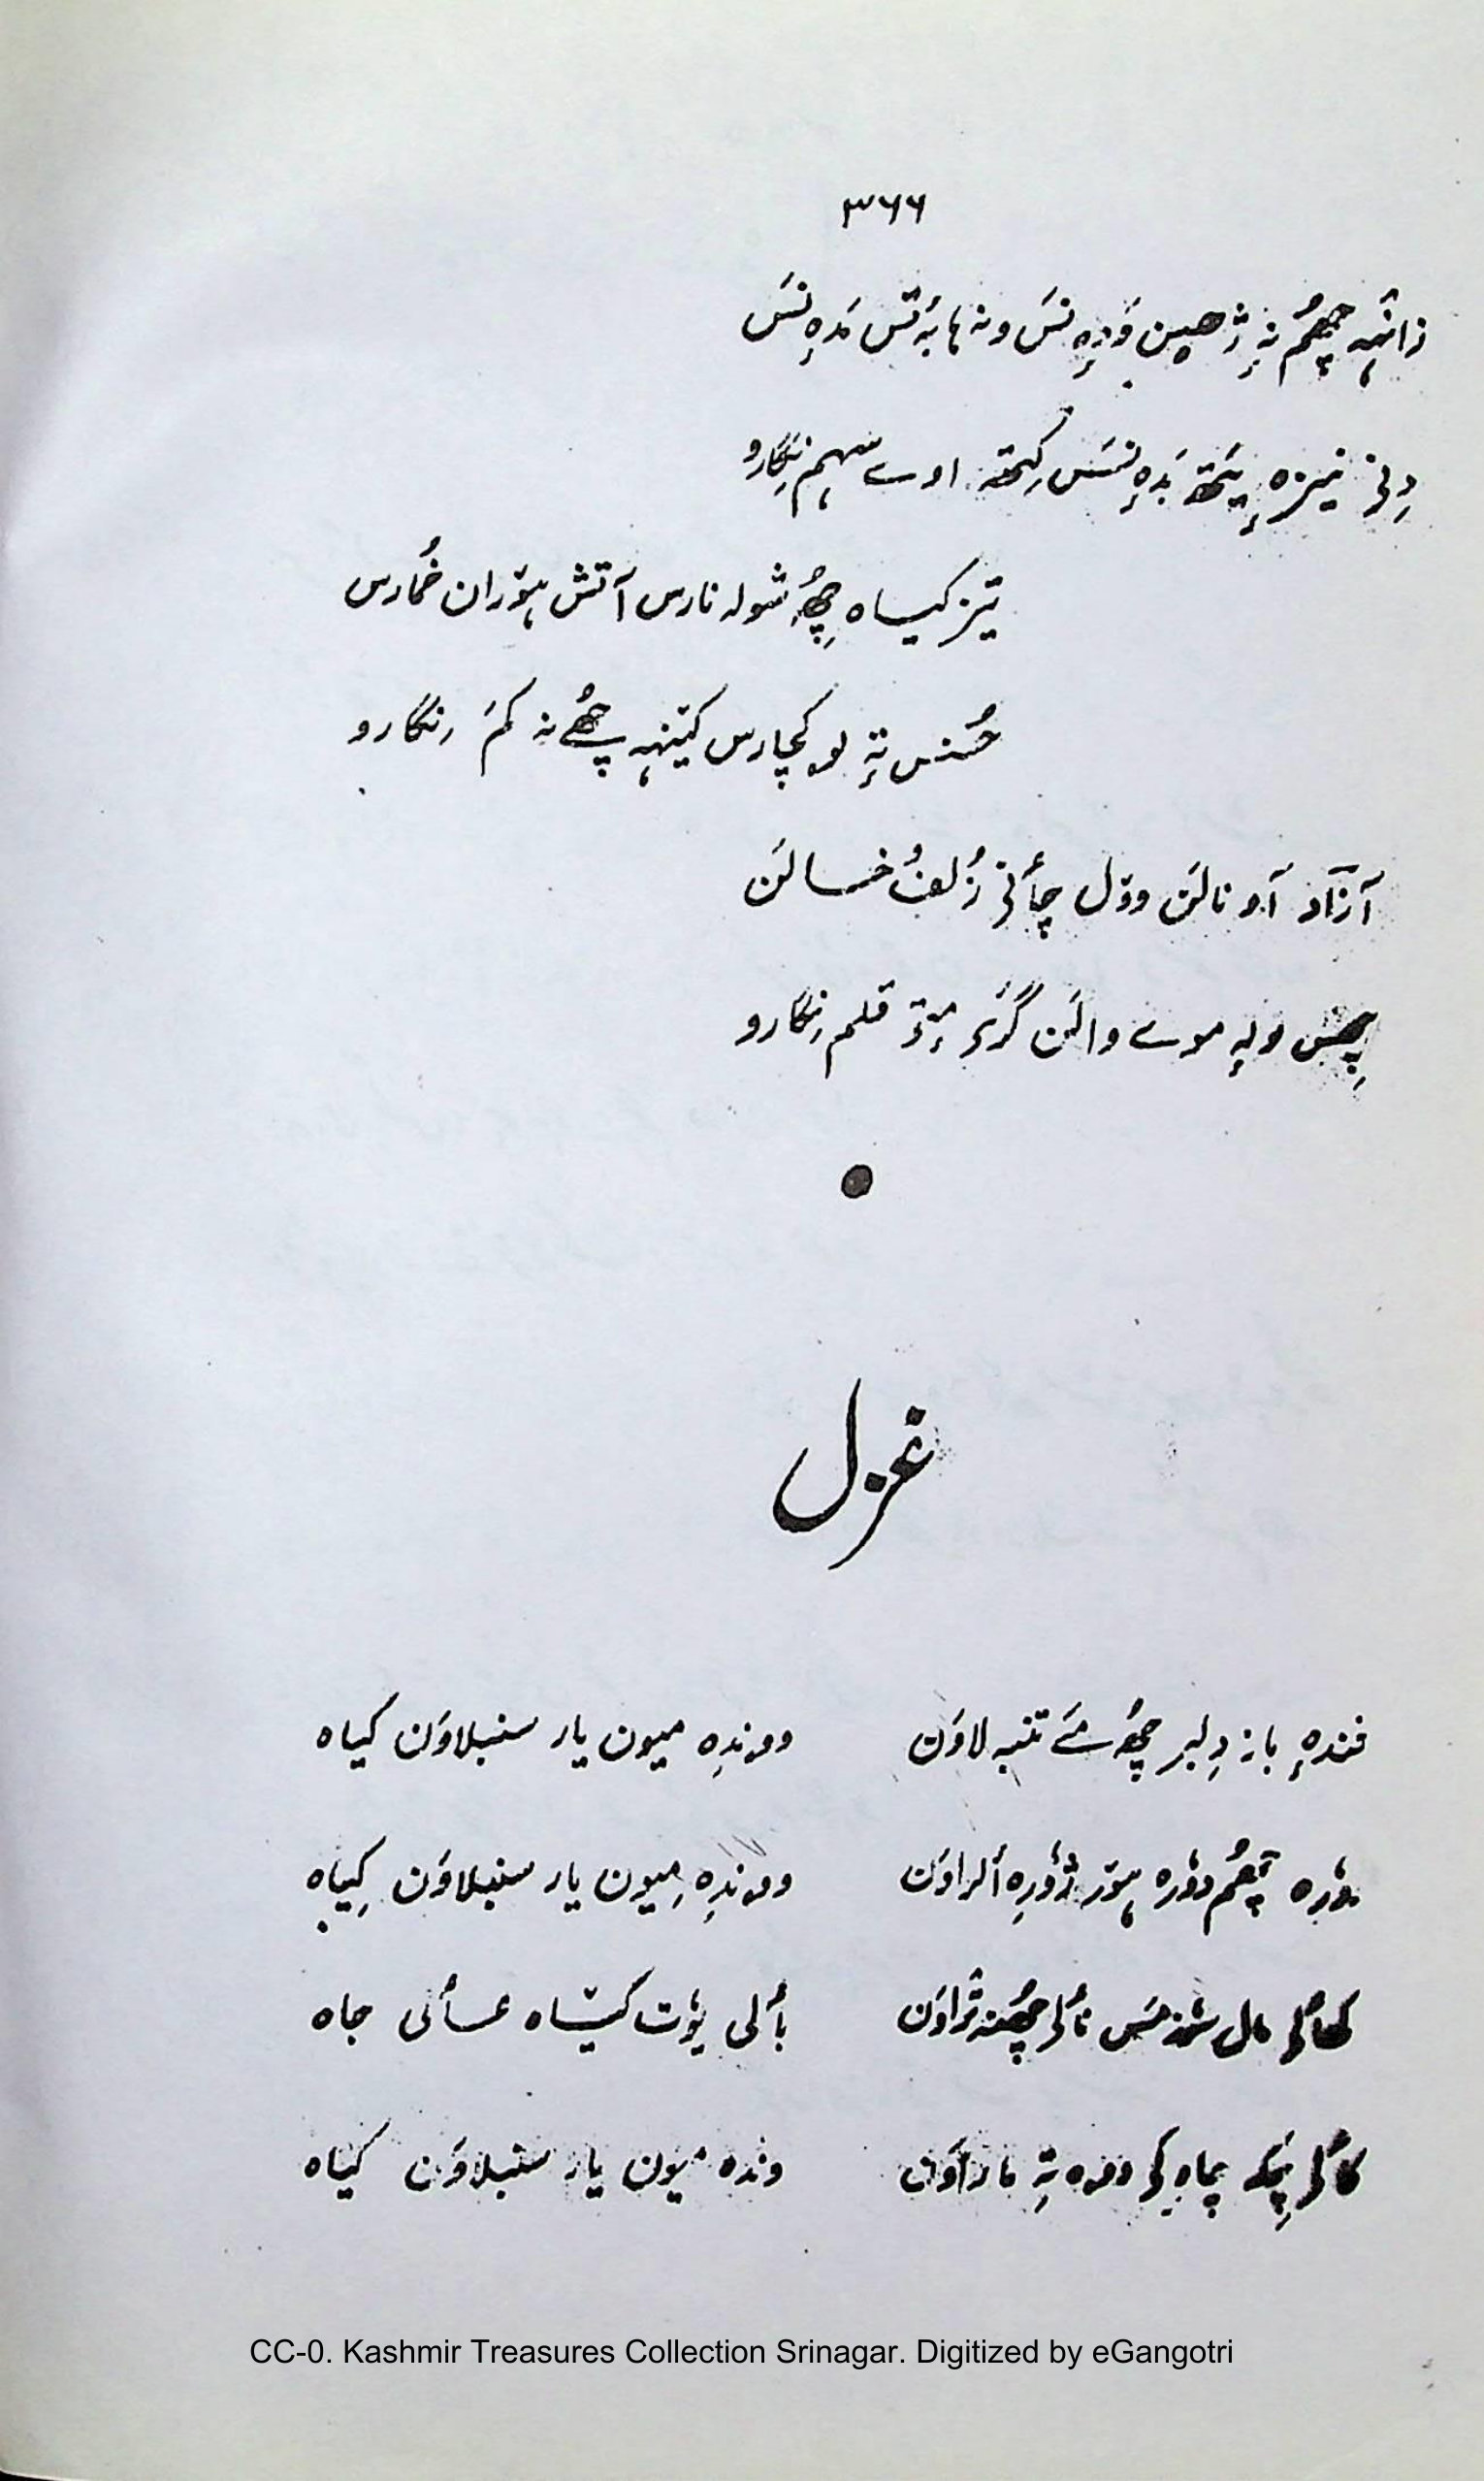 ۳۶۶
زانٛہہ چھُم نہٕ ژھین وَرٕہ نسَ ونہ ہا بہٕ تس مَدٕہ نسَ
دِنۍ نیزٕہ پیٚتھ بَدٕہ نسَس کِتھ اوسے سہم نِگارو
تیز کیاہ چھِہُ شولہ نارس آتش ہیوٚران خُمارس
حُسنس تہٕ لوکچارس کینٛہہ چھُے نہ کمَ نِگارو
آزاد آو نالَن وول چأنۍ زُلفُ خالَن
پھِس ولہٕ موے والَن گرَے مہٕ تہٕ قلم نِگارو
غزل
فندٕہ باز دِلبر چھُ مےَ تنبہ لاوَن ووندِہ میون یار سنبلاوَن کیاہ
دوٗرہ چھُم دوٗرہ ہیوٚر ژوٗرِہ ألراوَن ووندِہ میون یار سنبلاوَن کیاہ
کھألۍ مال شُرمَس نألۍ چھُنہٕ تراوَن بألی یوٗت کیتاہ عسأنی جاہ
کألۍ پگہ چاہِ کی دورہ تہٕ ماراوَن وندہ میون یار سنبلاوَن کیاہ
CC-0. Kashmir Treasures Collection Srinagar. Digitized by eGangotri